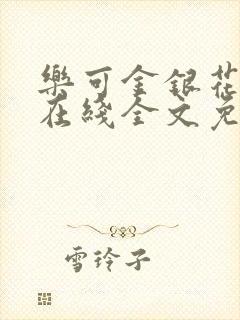 樂可金銀花
在綫全文免
雪玲子